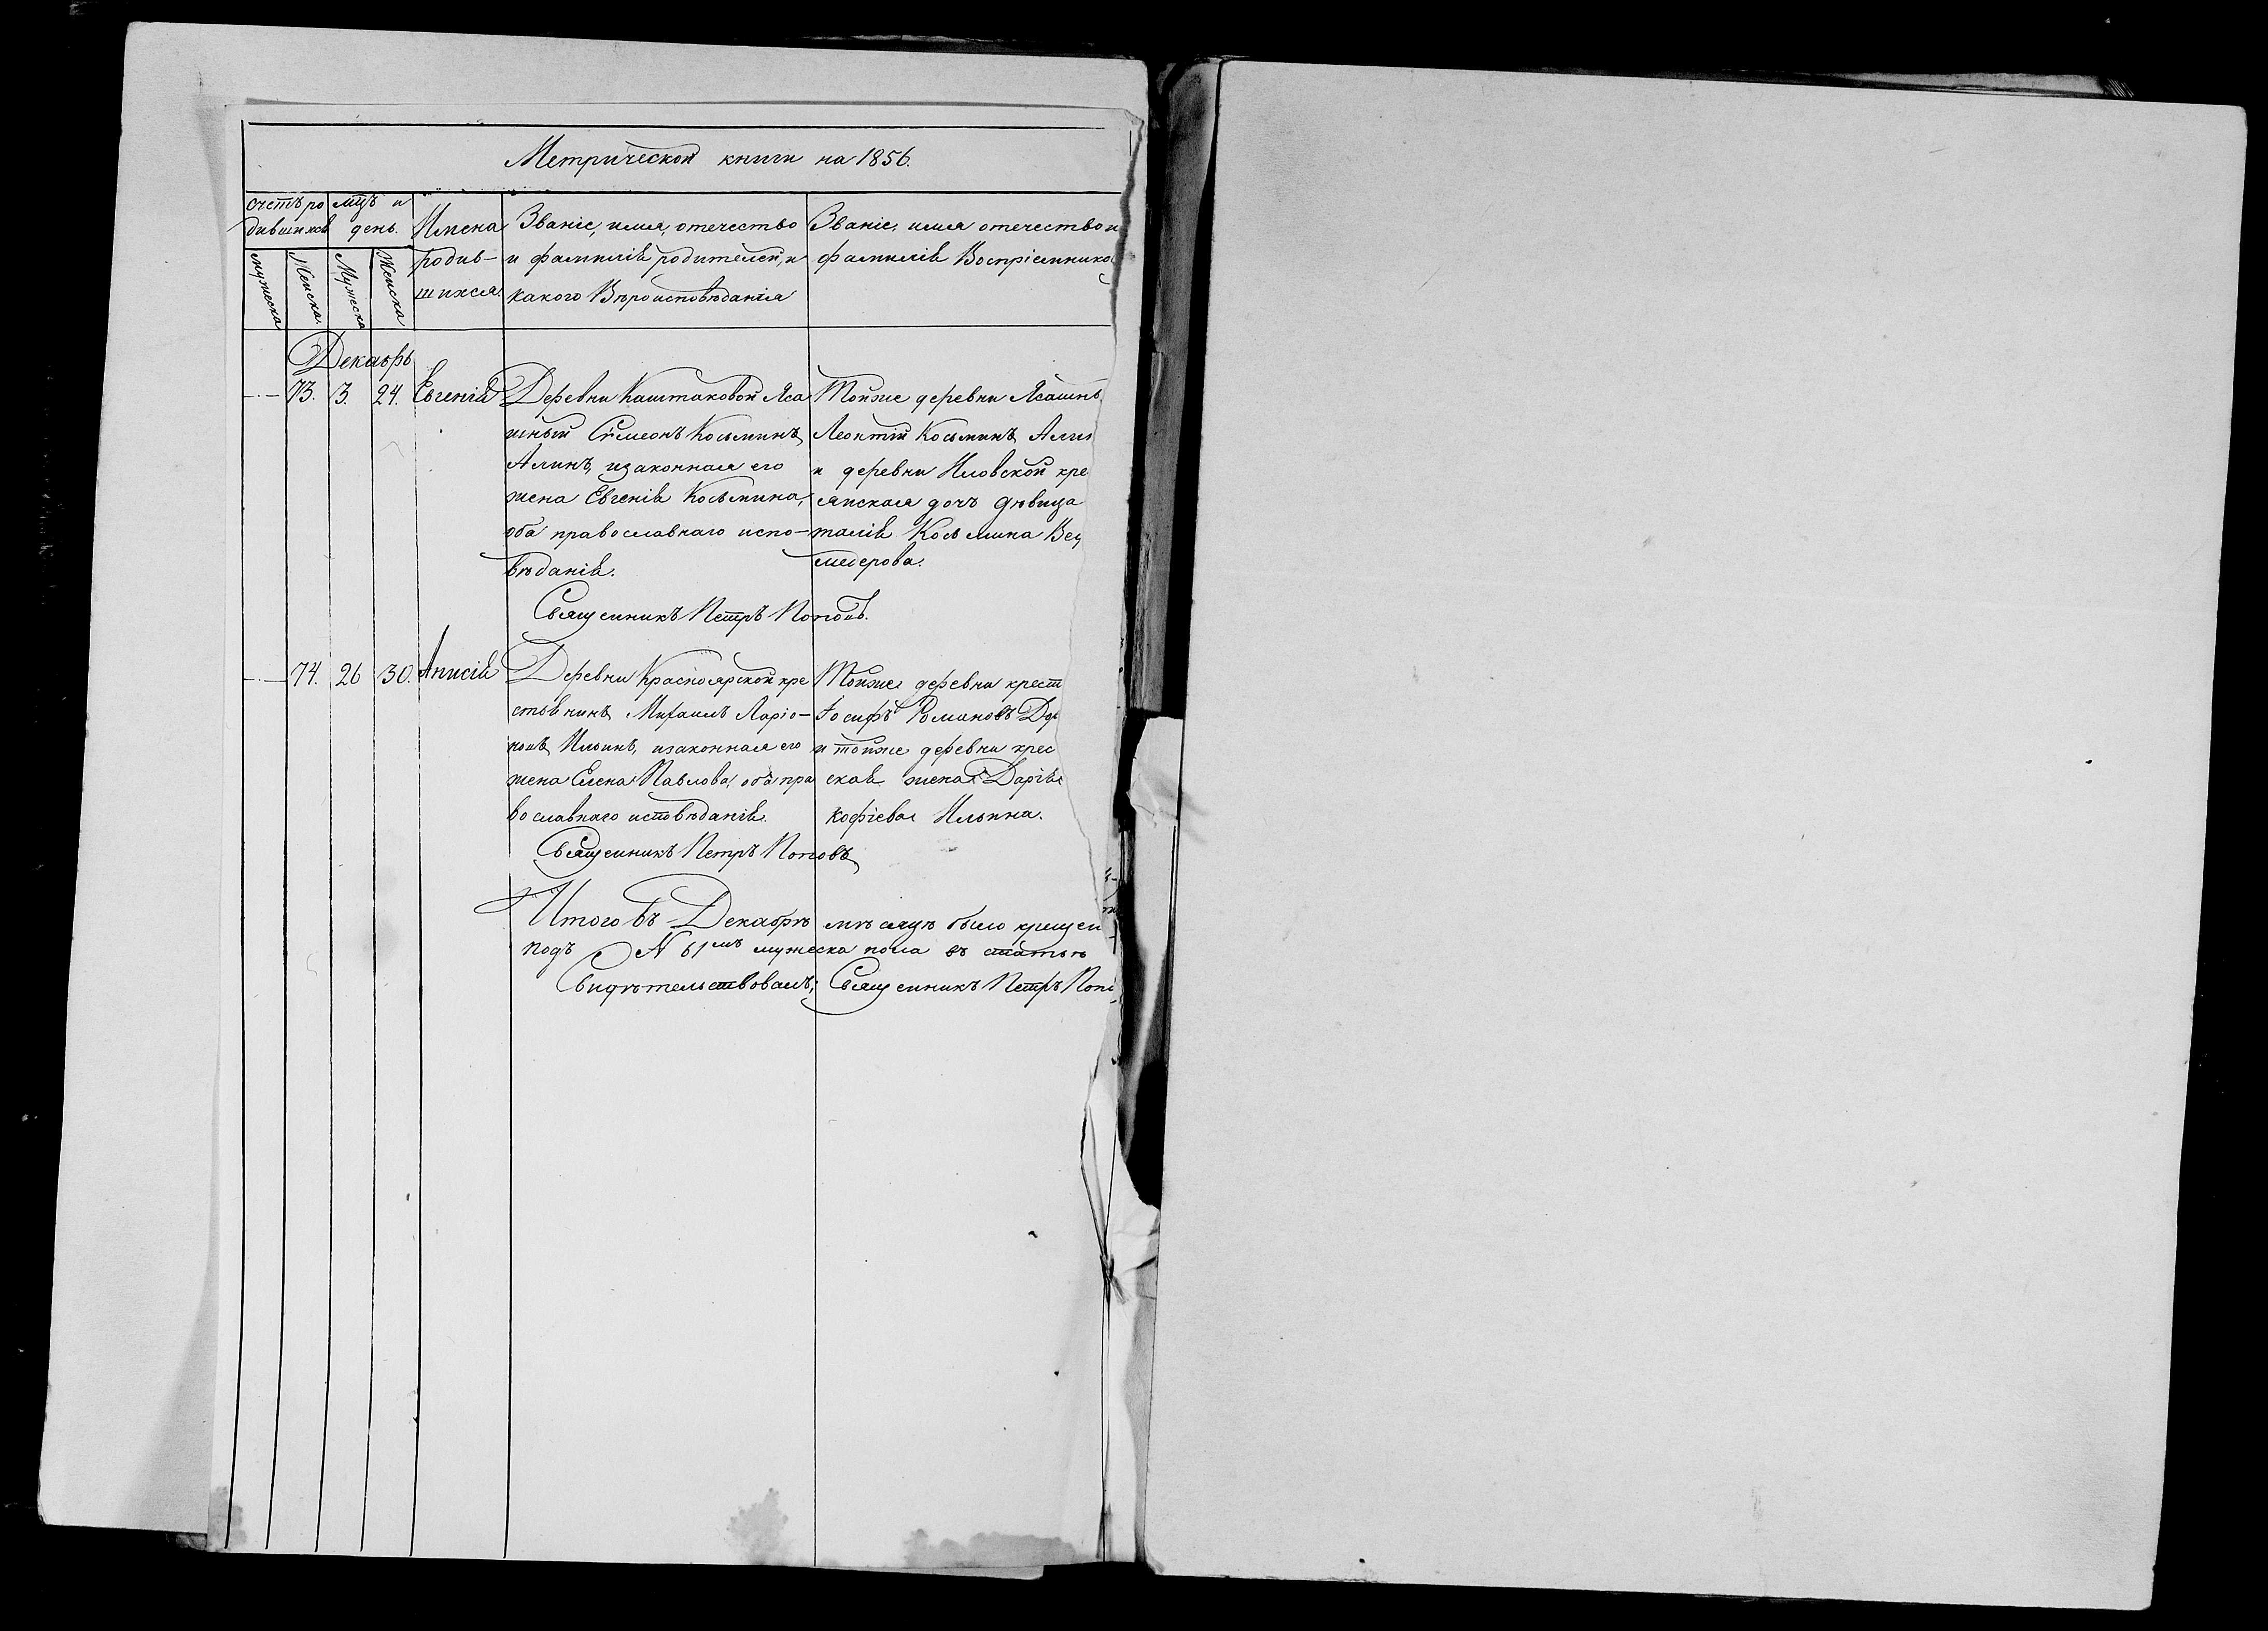 Метрической книги на 1856.
счетъ ро
дившихся
мцъ и
день.
Имена
родив-
шихся.
Званіе, имя, отечество
и фамилія родителей, и
какого Вѣроисповѣданія
Званіе, имя отечество и
фамилія Воспріемнико
мужеска
Женска.
Мужеска
Женска
Декабрь
73. 3. 24. Евгенія
Деревни Каштаковой Яса
шный Сѵмеонъ Косьминъ
Алинъ, изаконная его
жена Евгенія Косьмина,
оба православнаго испо-
вѣданія.
Тойже деревни Ясашны
Леонтій Косьминъ Алин
и деревни Иловской кре
янская дочь дѣвица
талія Косьмина
Священникъ Петръ Поповъ.
74. 26 30. Анисія
Деревни Красноярской кре
стьянинъ Михаилъ Ларіо-
новъ Ильинъ, изаконная его
жена Елена Павлова, оба пра
вославнаго исповѣданія.
Тойже деревни крест
Іосифъ Романовъ
и тойже деревни крес
ская жена Дарія
кофіева Ильина.
Священникъ Петръ Поповъ
Итого въ Декабрѣ мѣсяцѣ было крещен
подъ № 61мъ мужеска пола въ статью
Свидѣтельствовалъ; Священникъ Петръ Попо